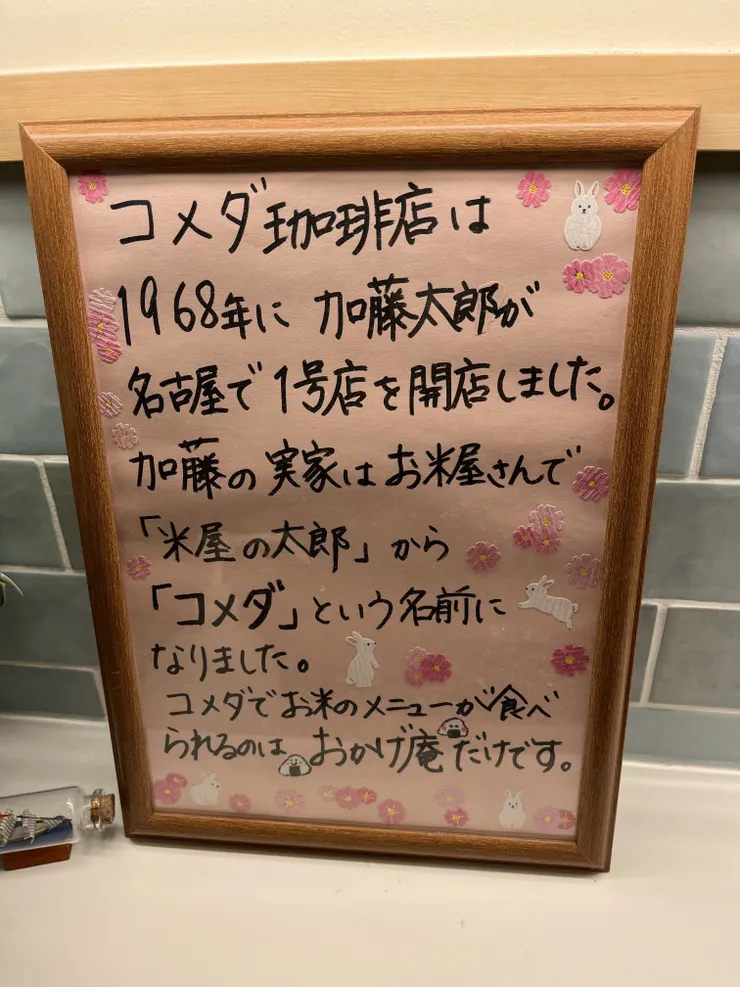 コメダ珈琲店は
1968年に 加藤太郎が
名古屋で1号店を開店しました。
加藤の実家はお米屋さんで
「米屋の太郎」から
「コメダ」という名前に
なりました。
コメダでお米のメニューが食べ
られるのは おかげ庵だけです。